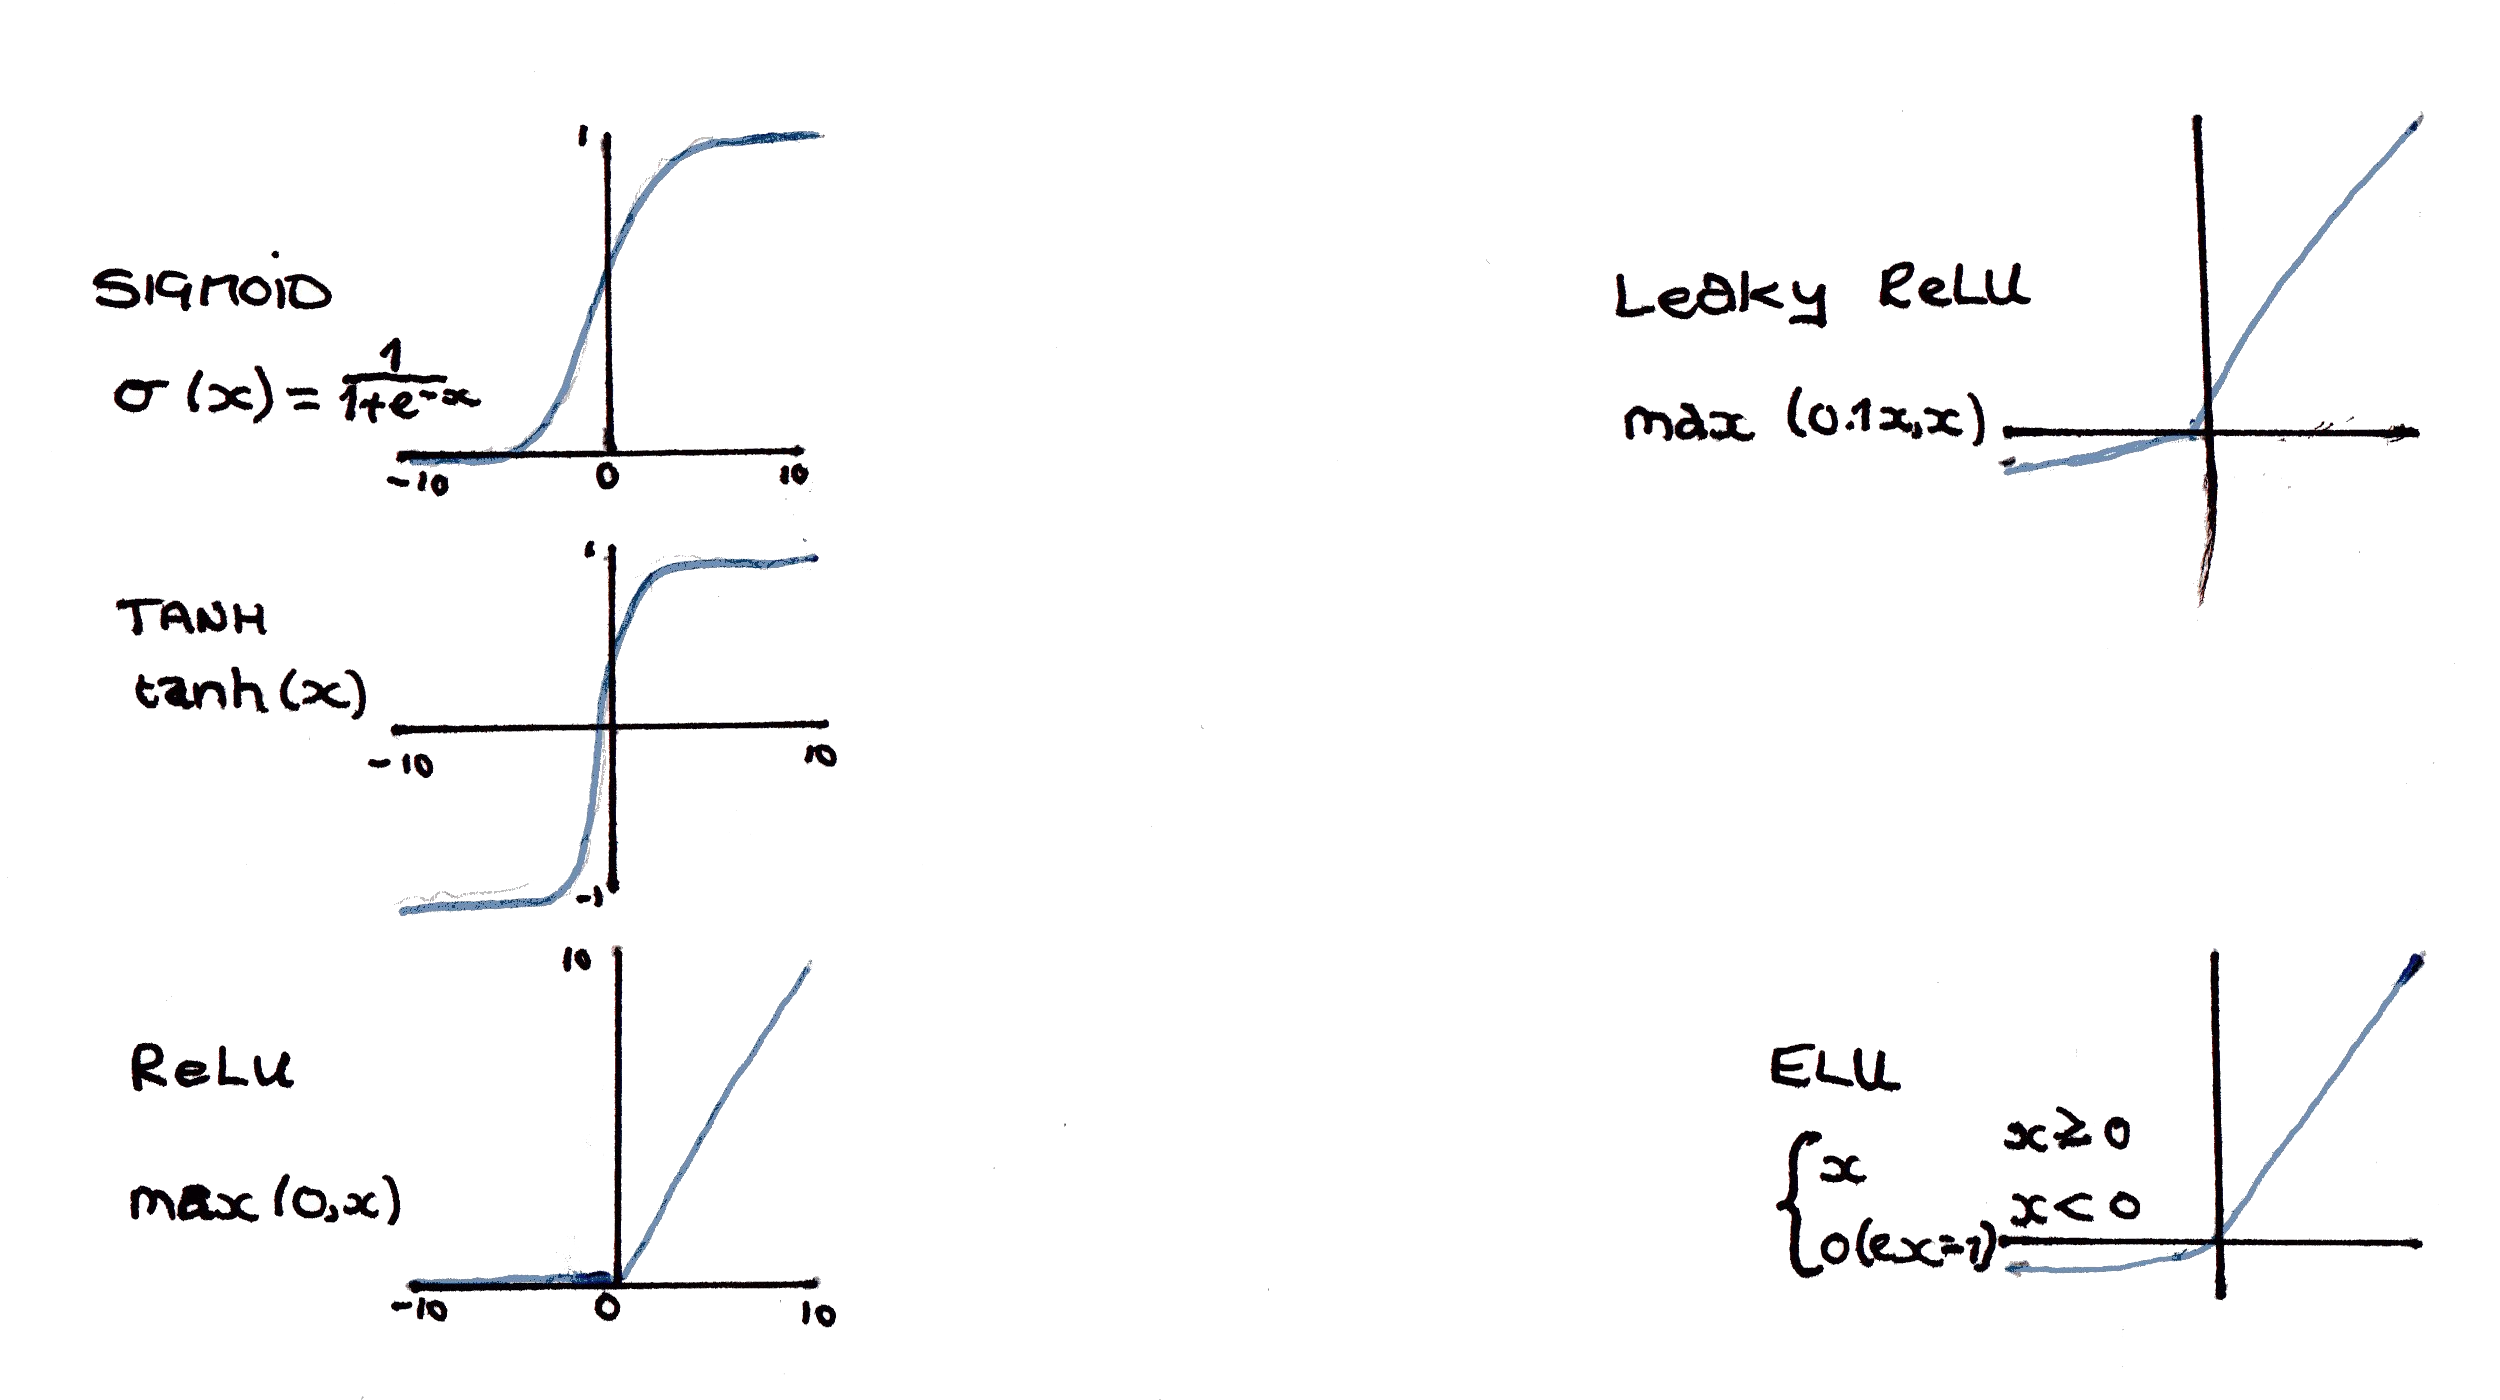 1
SIGMOiD
σ (x) = 1
1+e-x
-10 0 10
1
TANH
tanh (x)
-10 10
-1
10
ReLU
max (0,x)
-10 0 10
Leaky ReLU
max (0.1x,x)
ELU
x x≥0
x<0
0(ex-1)